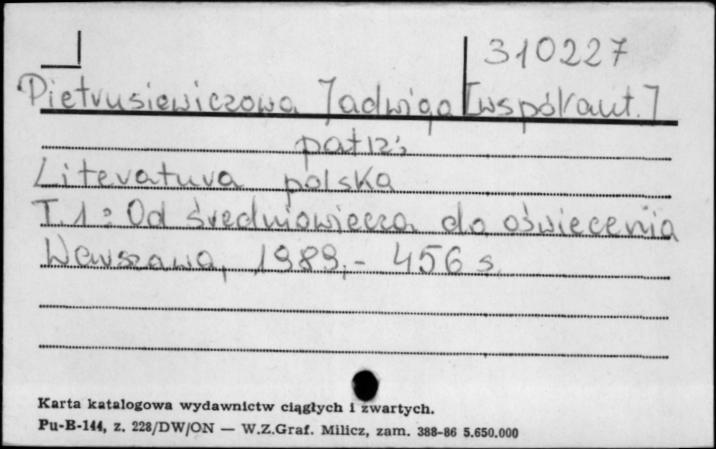 310227
Pietrusiewiczowa Jadwiga [współaut.]
patrz:
Literatura polska
T. 1: Od średniowiecza do oświecenia
Warszawa, 1989,- 456 s.
Karta katalogowa wydawnictw ciągłych i zwartych.
Pu-B-144, z. 228/DW/ON — W.Z.Graf. Milicz, zam. 388-86 5.650.000